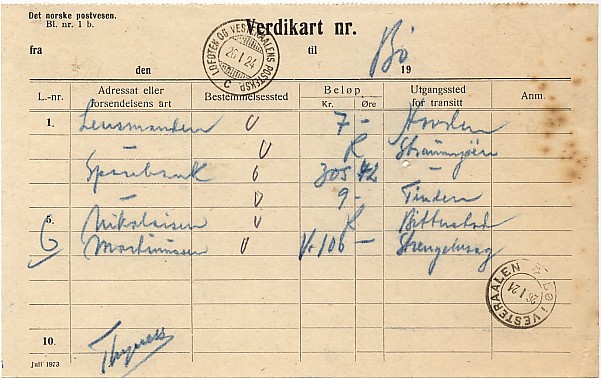 Det norske postvesen.
Bl. nr. 1 b.
Verdikart nr.
fra til Bö
den 19
LOFOTEN OG VESTERAALENS POSTEKSP. C
26 I 24
L.-nr. Adressat eller forsendelsens årt Bestemmelsessted Beløp Utgangssted for transitt Anm.
Kr. Øre
1. Lensmanden 7 -
Straumsjöen
Sparebank 305 42 -
- 9 - Tinden
5. Nikolaisen
6 Martinussen 106 - Strengelvaag
BØ I VESTERAALEN
26 I 24
10.
Juli 1923